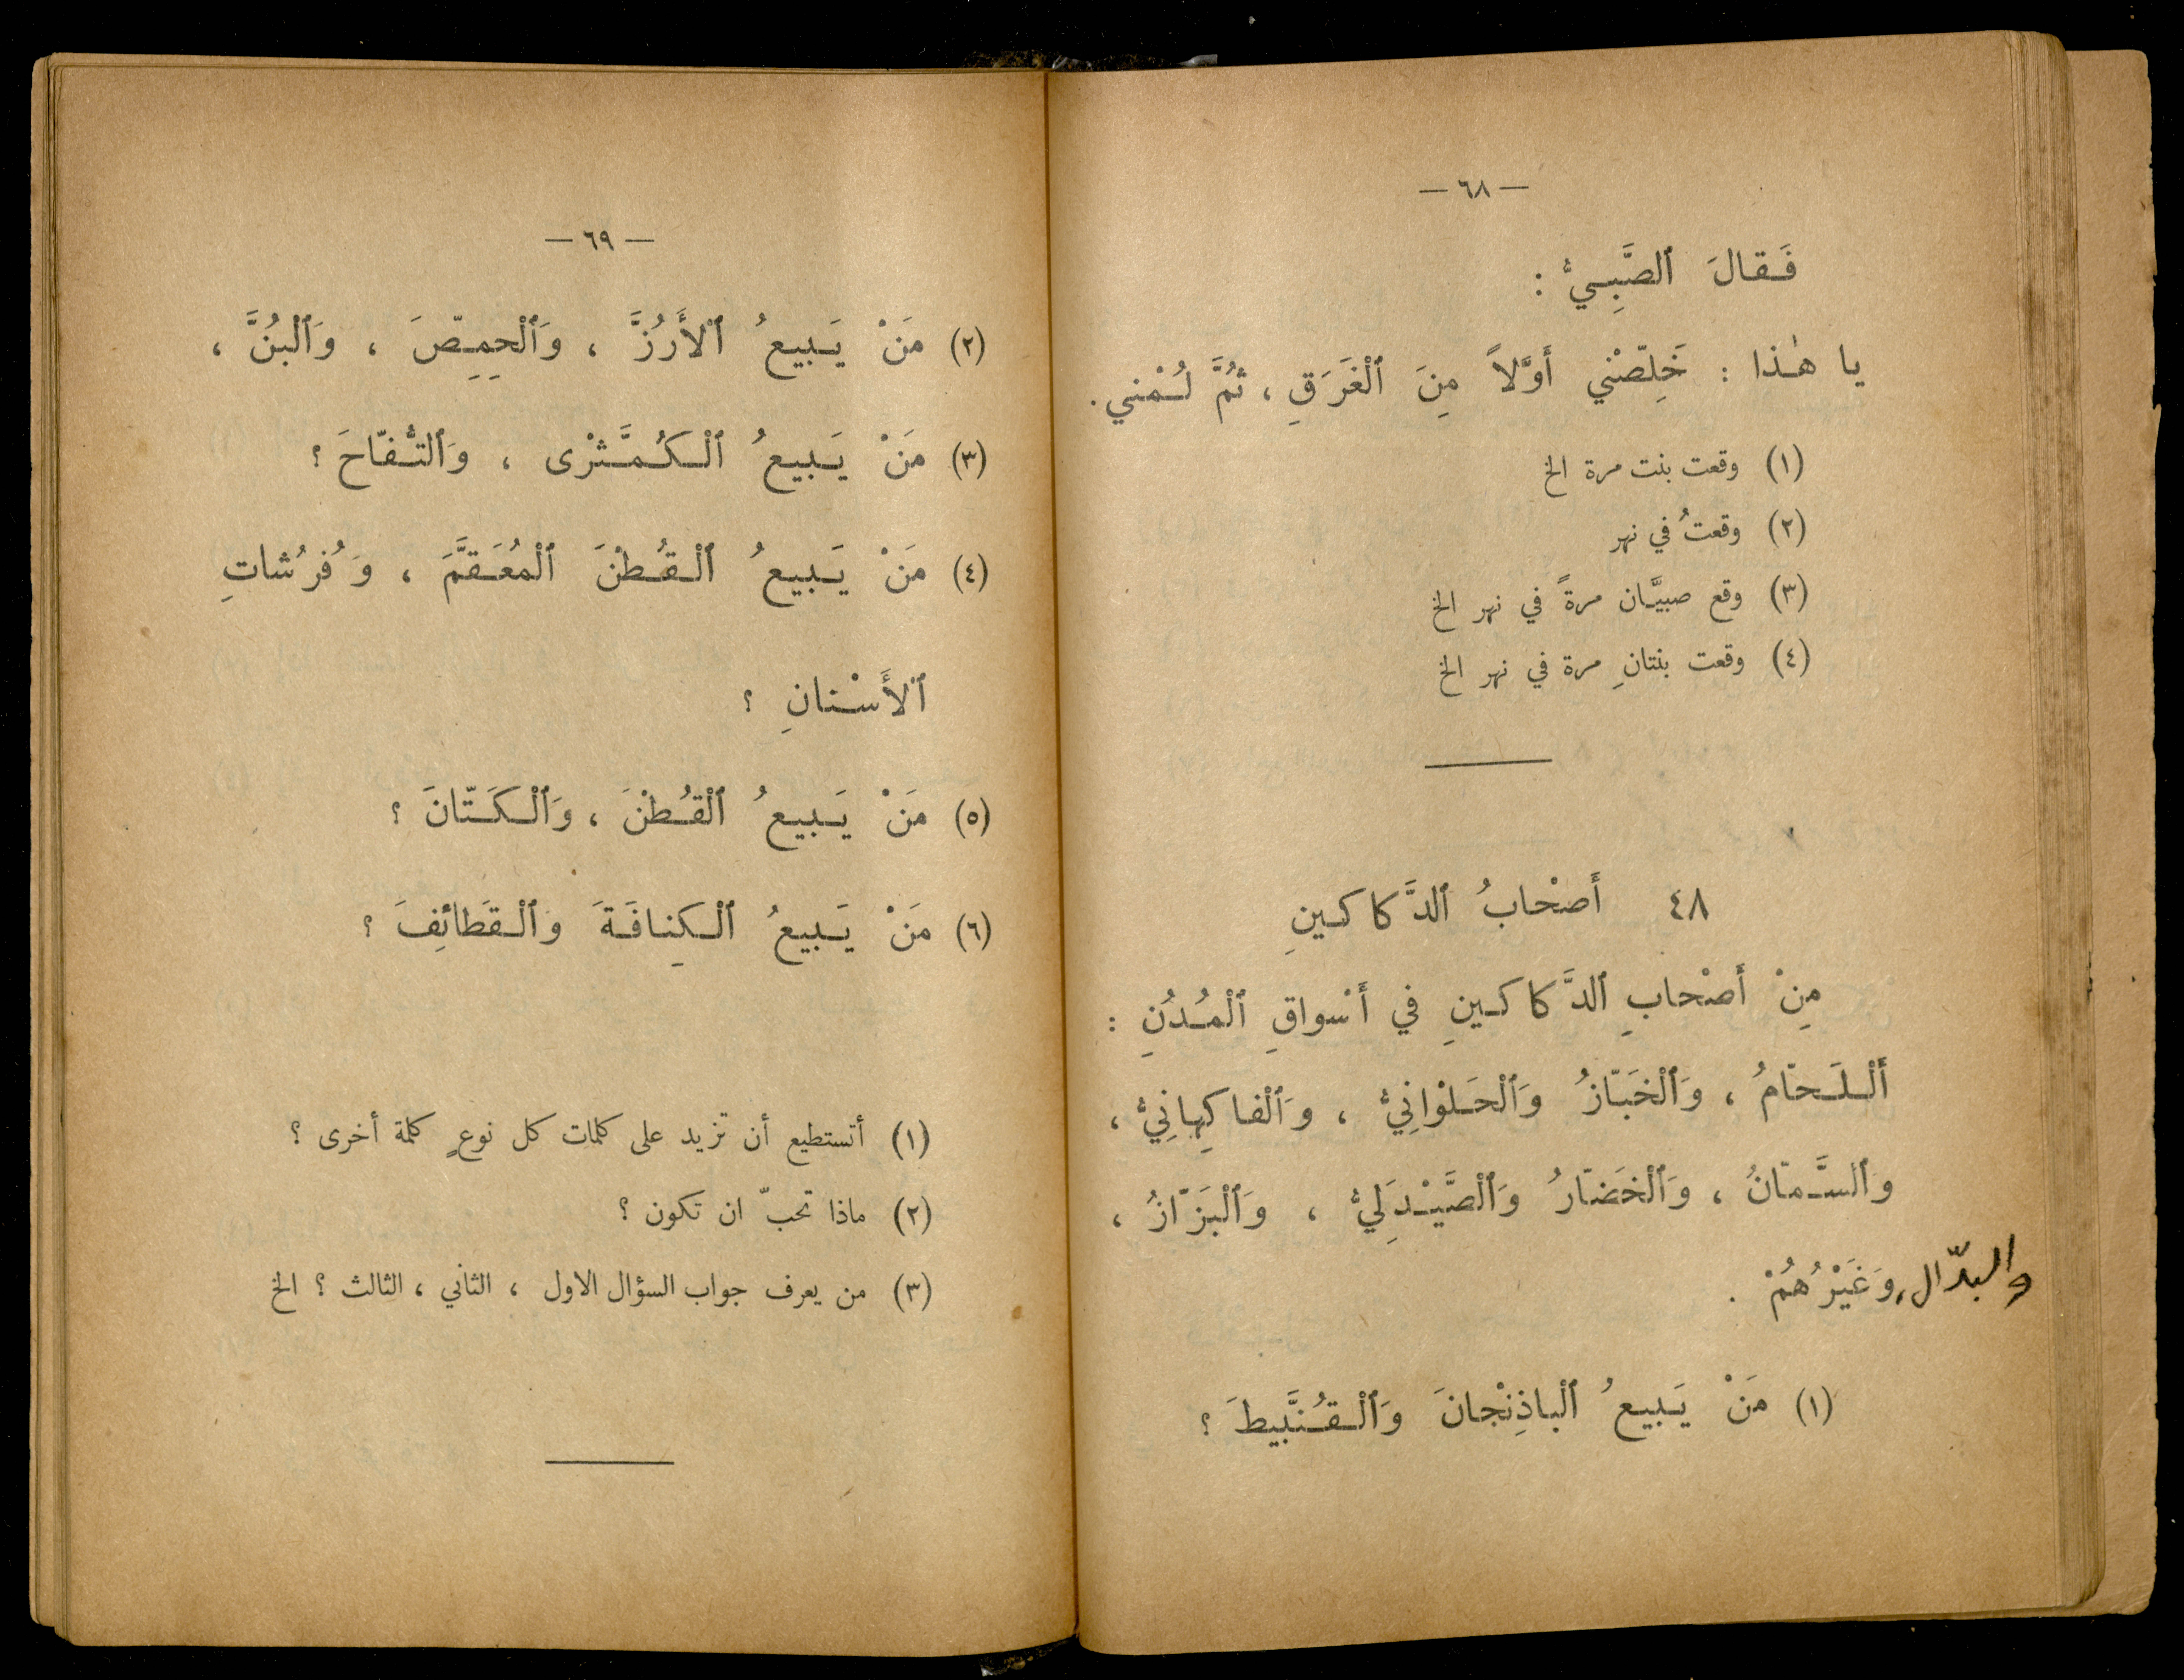 — ٦٨ —
فَقالَ ٱلصَّبِيُّ :
يا هٰذا : خَلِّصْني أَوَّلاً مِنَ ٱلْغَرَقِ ، ثُمَّ لُمْني .
(١) وقعت بنت مرة الخ
(٢) وقعتُ في نهر
(٣) وقع صبيَّان مرةً في نهر الخ
(٤) وقعت بنتانِ مرة في نهر الخ
٤٨ أَصْحابُ ٱلدَّكاكينِ
مِنْ أَصْحابِ ٱلدَّكاكينِ في أَسْواقِ ٱلْمُدُنِ :
أَلْلَحّامُ ، وَٱلْخَبّازُ وَٱلْحَلْوانِيُّ ، وَٱلْفاكِهانِيُّ ،
وَٱلسَّمّانُ ، وَٱلْخَضّارُ وَٱلْصَّيْدَلِيُّ ، وَٱلْبَزّازُ ،
والبدّال، وَغَيْرُهُمْ .
(١) مَنْ يَبيعُ ٱلْباذِنْجانَ وَٱلْقُنَّبيطَ ؟
— ٦٩ —
(٢) مَنْ يَبيعُ ٱلْأَرُزَّ ، وَٱلْحِمِّصَ ، وَٱلْبُنَّ ،
(٣) مَنْ يَبيعُ ٱلْكُمَّثْرى ، وَٱلتُّفّاحَ ؟
(٤) مَنْ يَبيعُ ٱلْقُطْنَ ٱلْمُعَقَّمَ ، وَفُرُشاتِ
ٱلْأَسْنانِ ؟
(٥) مَنْ يَبيعُ ٱلْقُطْنَ ، وَٱلْكَتّانَ ؟
(٦) مَنْ يَبيعُ ٱلْكِنافَةَ وَٱلْقَطائِفَ ؟
(١) أتستطيع أن تزيد على كلمات كل نوعٍ كلمة أخرى ؟
(٢) ماذا تحبّ ان تكون ؟
(٣) من يعرف جواب السؤال الاول ، الثاني ، الثالث ؟ الخ